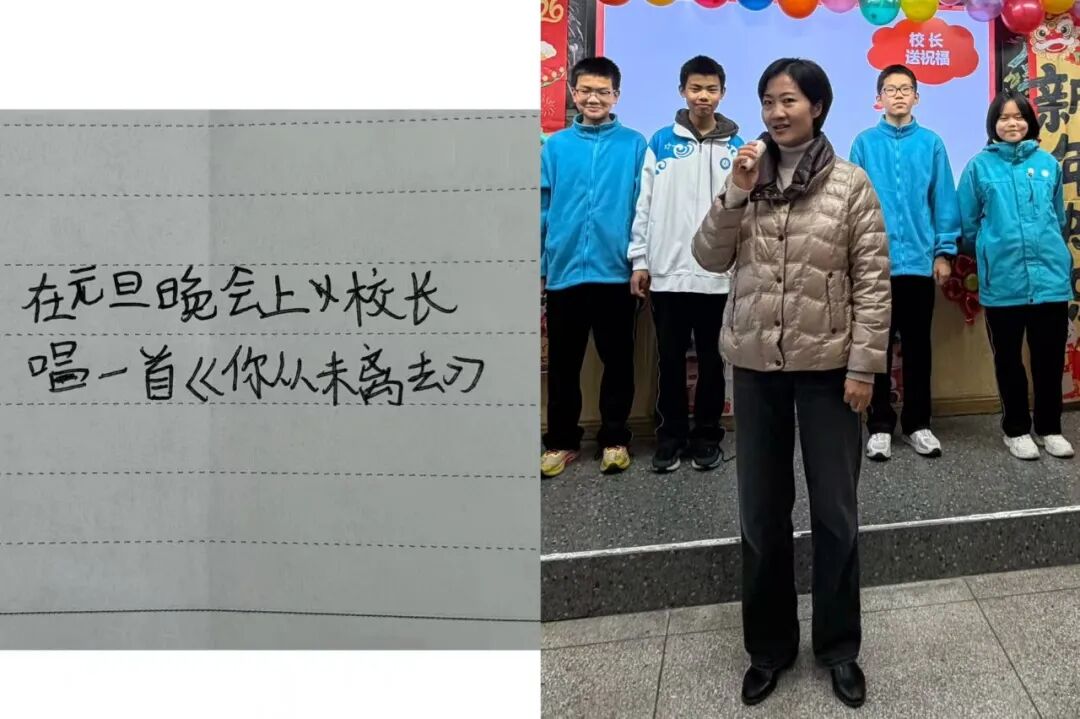 在元旦晚会上对校长
唱一首《你从未离去》
26
校长
送祝福
新年